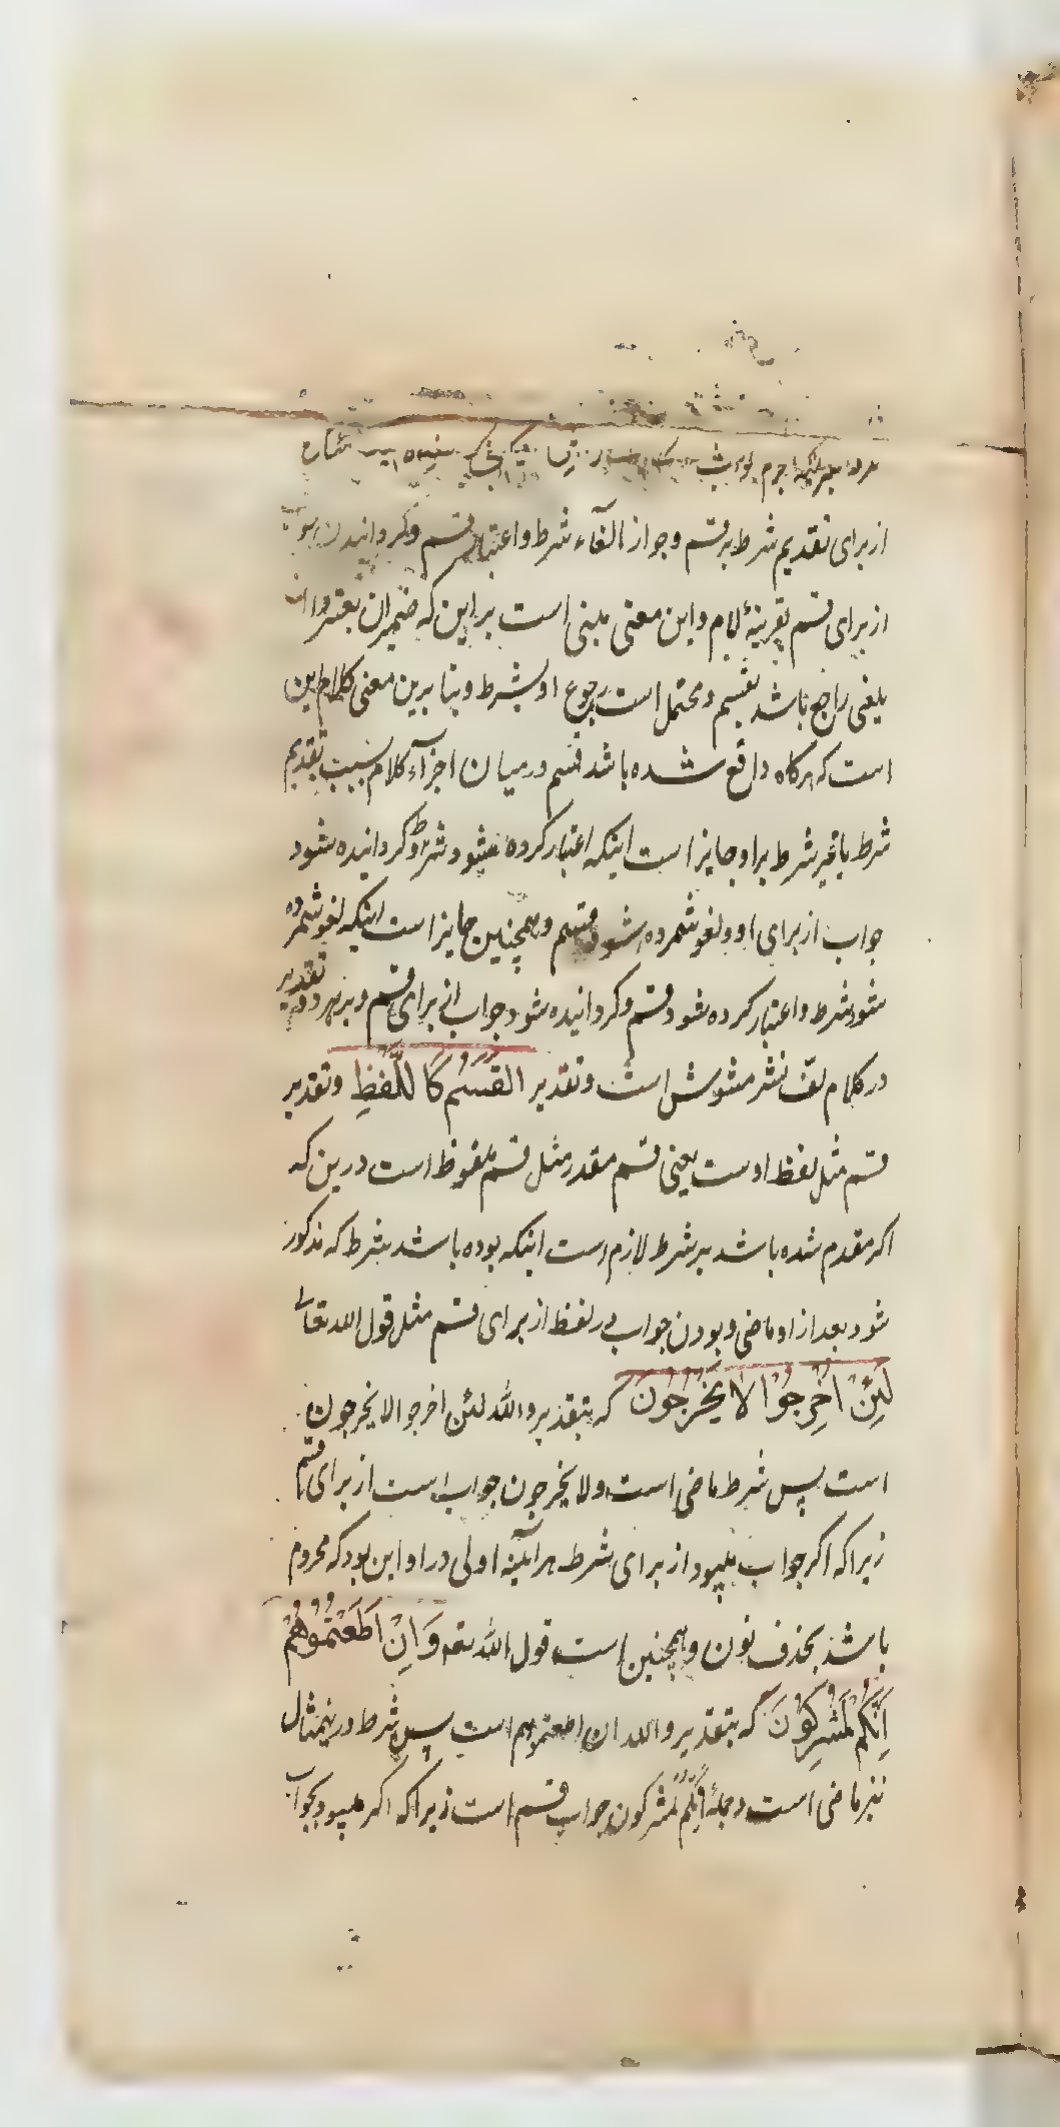 از برای تقدیم شرط بر قسم و جواز الغآء شرط و اعتبار قسم و کردانیدن جواب
از برای قسم بقرینهٔ لام و این معنی مبنی است بر این که ضمیر ان یعتبر و ان
یلغی راجع باشد بقسم و محتمل است رجوع او بشرط و بنا برین معنی کلام این
است که هرکاه واقع شده باشد قسم در میان اجزآء کلام بسبب تقدیم
شرط یا غیر شرط بر او جایز است اینکه اعتبار کرده شود شرط و کردانیده شود
جواب از برای او و لغو شمرده شود قسم و همچنین جایز است اینکه لغو شمرده
شود شرط و اعتبار کرده شود قسم و کردانیده شود جواب از برای قسم و بر هر دو تقدیر
در کلام لفّ نشر مشوش است و تقدیر القسم کا للّفظِ و تقدیر
قسم مثل لفظ اوست یعنی قسم مقدر مثل قسم ملفوظ است درین که
اکر مقدم شده باشد بر شرط لازم است اینکه بوده باشد شرط که مذکور
شود بعد از او ماضی و بودن جواب در لفظ از برای قسم مثل قول الله تعالی
لَئِنْ اُخْرِجُوْا لَا یَخْرُجُوْنَ که بتقدیر والله لئن اخرجوا لا یخرجون
است پس شرط ماضی است و لا یخرجون جواب است از برای قسم
زیرا که اکر جواب میبود از برای شرط هرآئینه اولی در او این بود که مجزوم
باشد بحذف نون و همچنین است قول الله تعه وَ اِنْ اَطَعْتُمُوْهُمْ
اِنَّکُمْ لَمُشْرِکُوْنَ که بتقدیر والله ان اطعتموهم است پس شرط درینمثال
نیز ماضی است و جملهٔ اِنَّکُمْ لَمُشْرِکون جواب قسم است زیرا که اکر میبود جواب